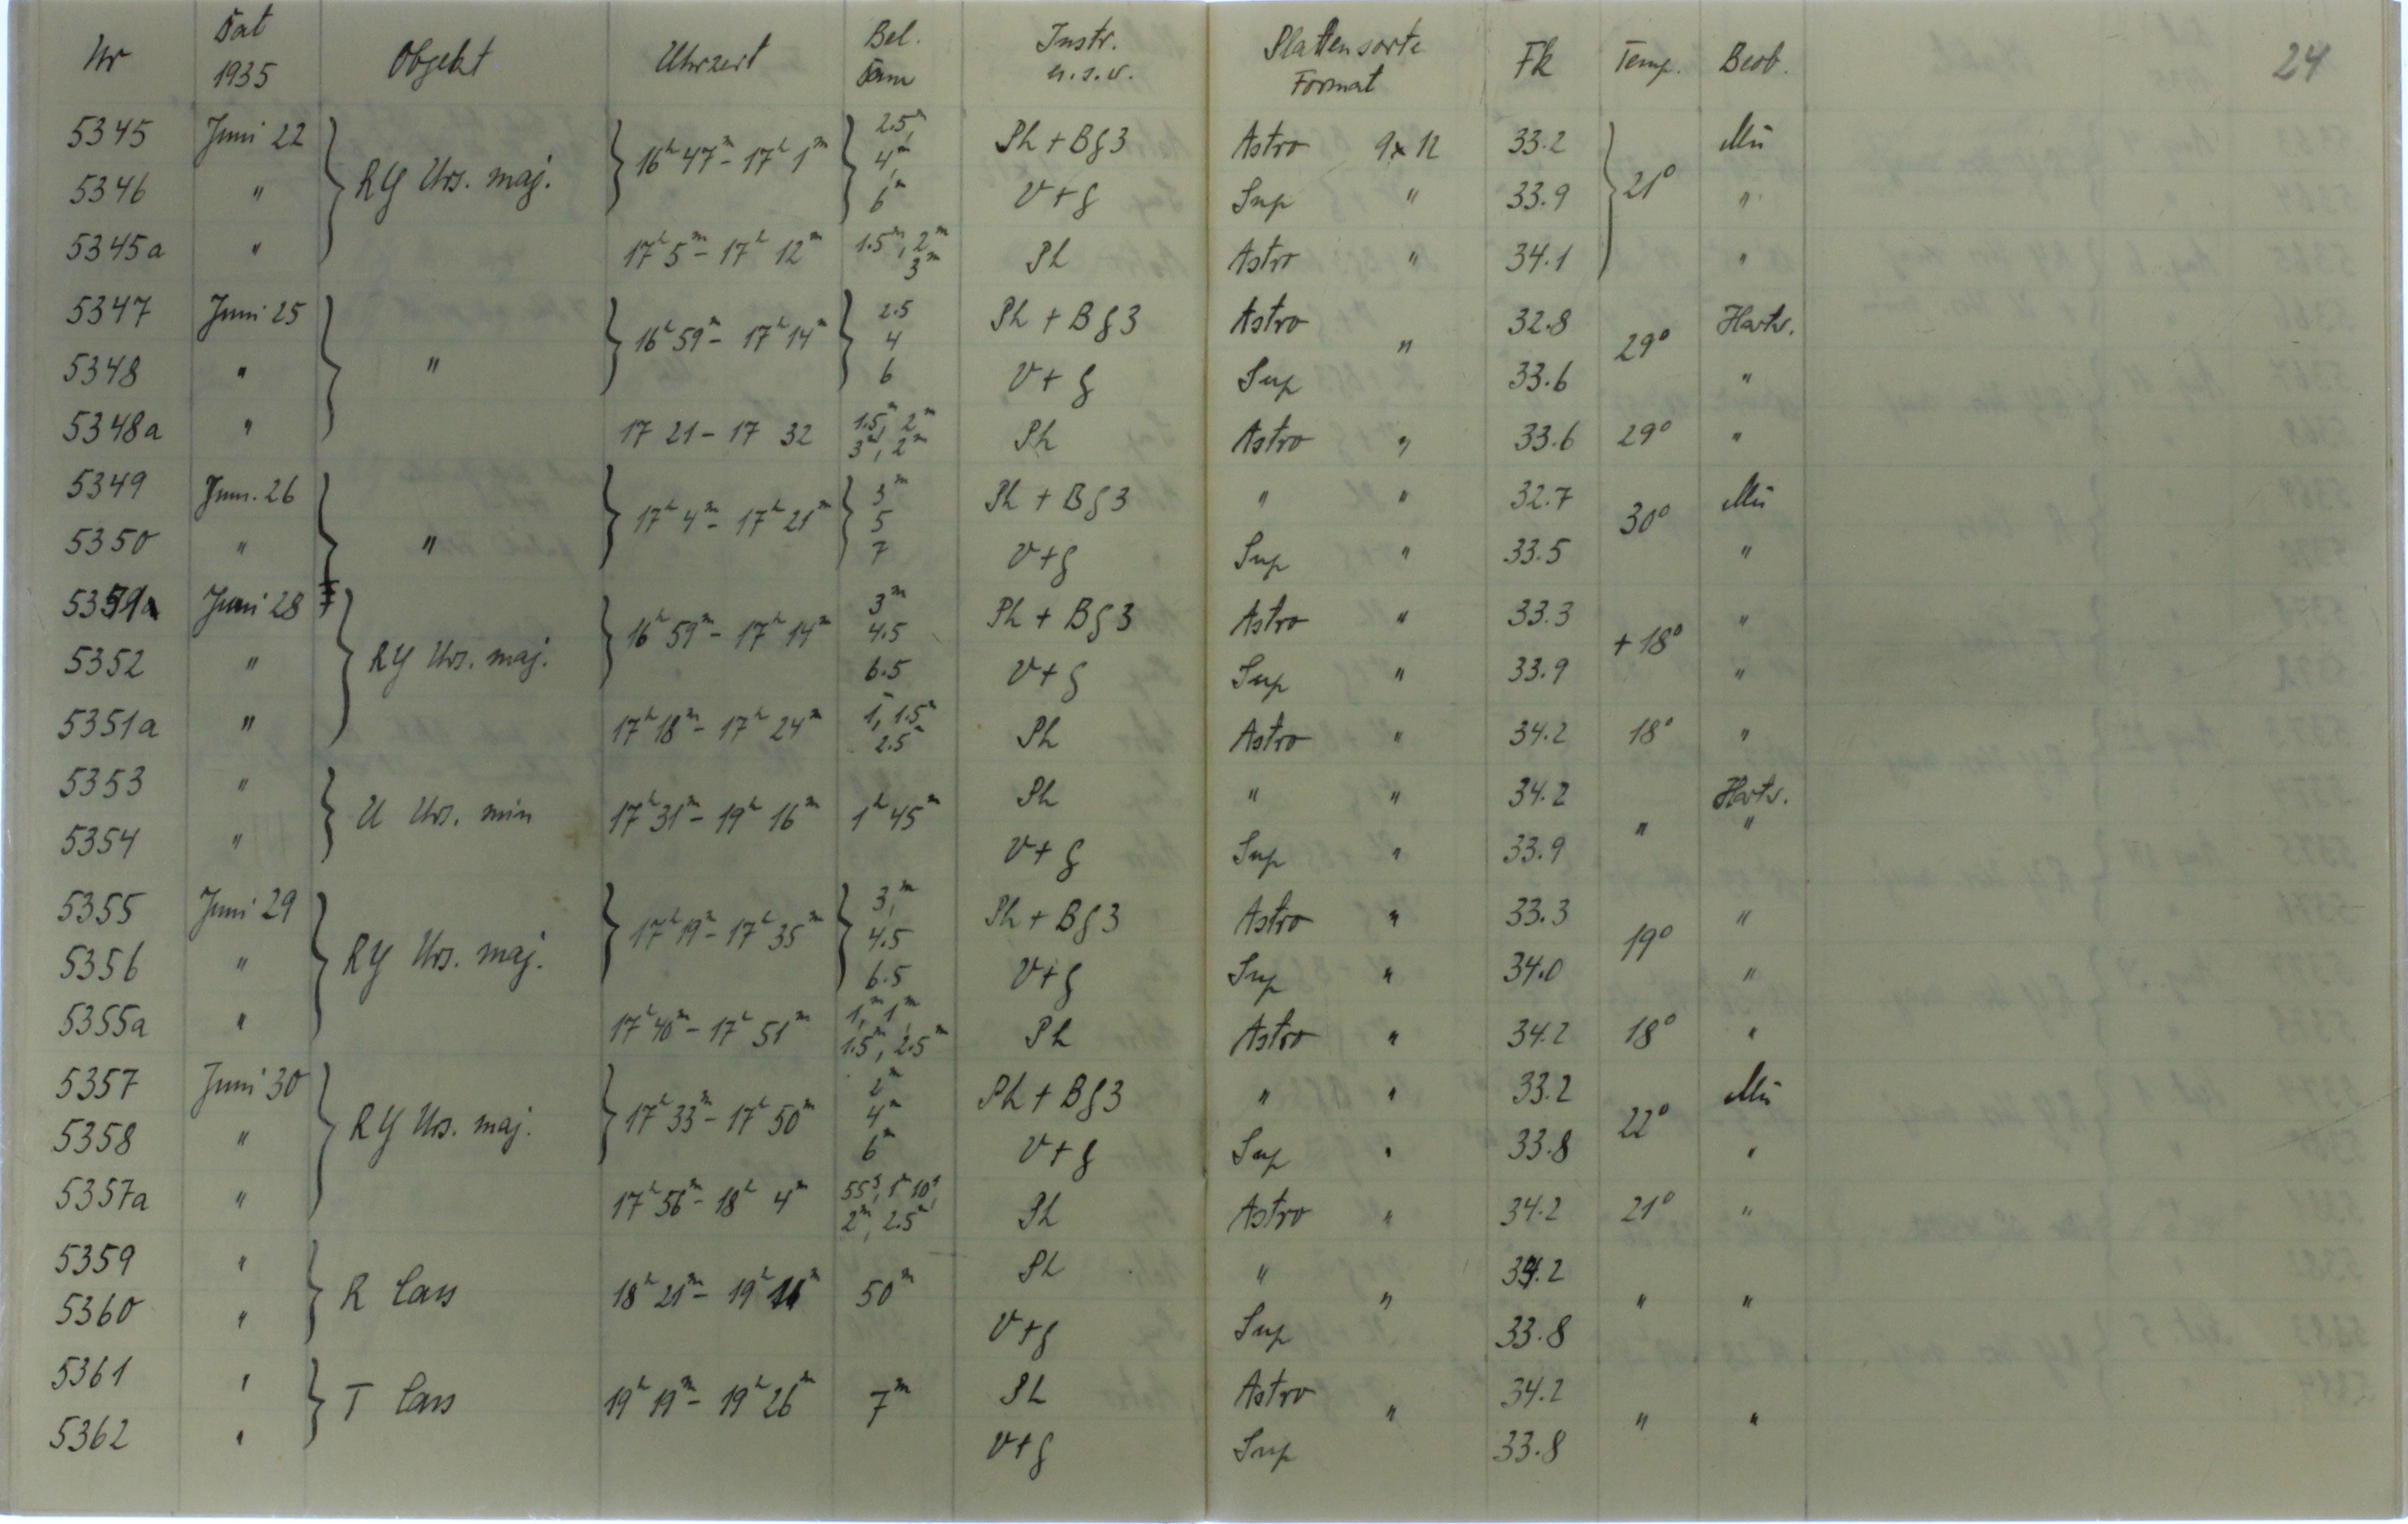 Nr Dat 1935 Objekt Uhrzeit Bel. Dau Instr. u.s.w. Plattensorte Format Fk Temp. Beob. 24
5345 Juni 22 RY Urs. maj. 16h 47m - 17h 1m 2.5m, 4m, 6m Ph + Bg3 Astro 9x12 33.2 21° Mü
5346 " V+g Sup " 33.9 "
5345a " 17h 5m - 17h 12m 1.5m, 2m 3m Ph Astro " 34.1 "
5347 Juni 25 " 16h 59m - 17h 14m 2.5 4 6 Ph + Bg3 Astro " 32.8 29° Hartw.
5348 " V+g Sup 33.6 "
5348a " 17 21 - 17 32 1.5m, 2m 3m, 2m Ph Astro " 33.6 29° "
5349 Juni 26 " 17h 4m - 17h 21m 3m 5 7 Ph + Bg3 " " 32.7 30° Mü
5350 " V+g Sup " 33.5 "
5351 Juni 28 RY Urs. maj. 16h 59m - 17h 14m 3m 4.5 6.5 Ph + Bg3 Astro " 33.3 +18° "
5352 " V+g Sup " 33.9 "
5351a " 17h 18m - 17h 24m 1m, 1.5m 2.5m Ph Astro " 34.2 18° "
5353 " U Urs. min 17h 31m - 19h 16m 1h 45m Ph " " 34.2 " Hartw.
5354 " V+g Sup " 33.9 "
5355 Juni 29 RY Urs. maj. 17h 19m - 17h 35m 3m, 4.5 6.5 Ph + Bg3 Astro " 33.3 19° "
5356 " V+g Sup " 34.0 "
5355a " 17h 40m - 17h 51m 1m, 1m, 1.5m, 2.5m Ph Astro " 34.2 18° "
5357 Juni 30 RY Urs. maj. 17h 33m - 17h 50m 2m 4m 6m Ph + Bg3 " " 33.2 22° Mü
5358 " V+g Sup " 33.8 "
5357a " 17h 56m - 18h 4m 55s, 1m 10s, 2m, 2.5m Ph Astro " 34.2 21° "
5359 " R Cass 18h 21m - 19h 11m 50m Ph " " 34.2 " "
5360 " V+g Sup 33.8
5361 " T Cass 19h 19m - 19h 26m 7m Ph Astro " 34.2 " "
5362 " V+g Sup 33.8